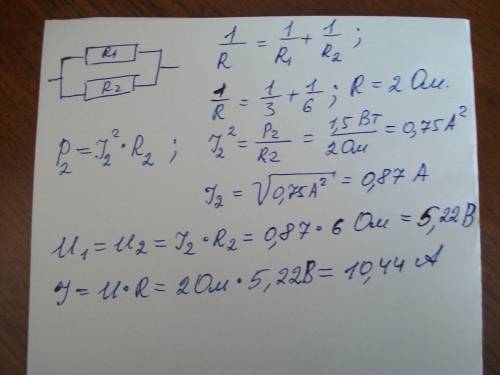 R₁
R₂
1/R = 1/R₁ + 1/R₂ ;
1/R = 1/3 + 1/6 ; R = 2 Ом.
P₂ = I₂² · R₂ ; I₂² = P₂/R₂ = 1,5 Вт/2 Ом = 0,75 А²
I₂ = √0,75А² = 0,87 А
U₁ = U₂ = I₂ · R₂ = 0,87 · 6 Ом = 5,22 В
I = U · R = 2 Ом · 5,22 В = 10,44 А